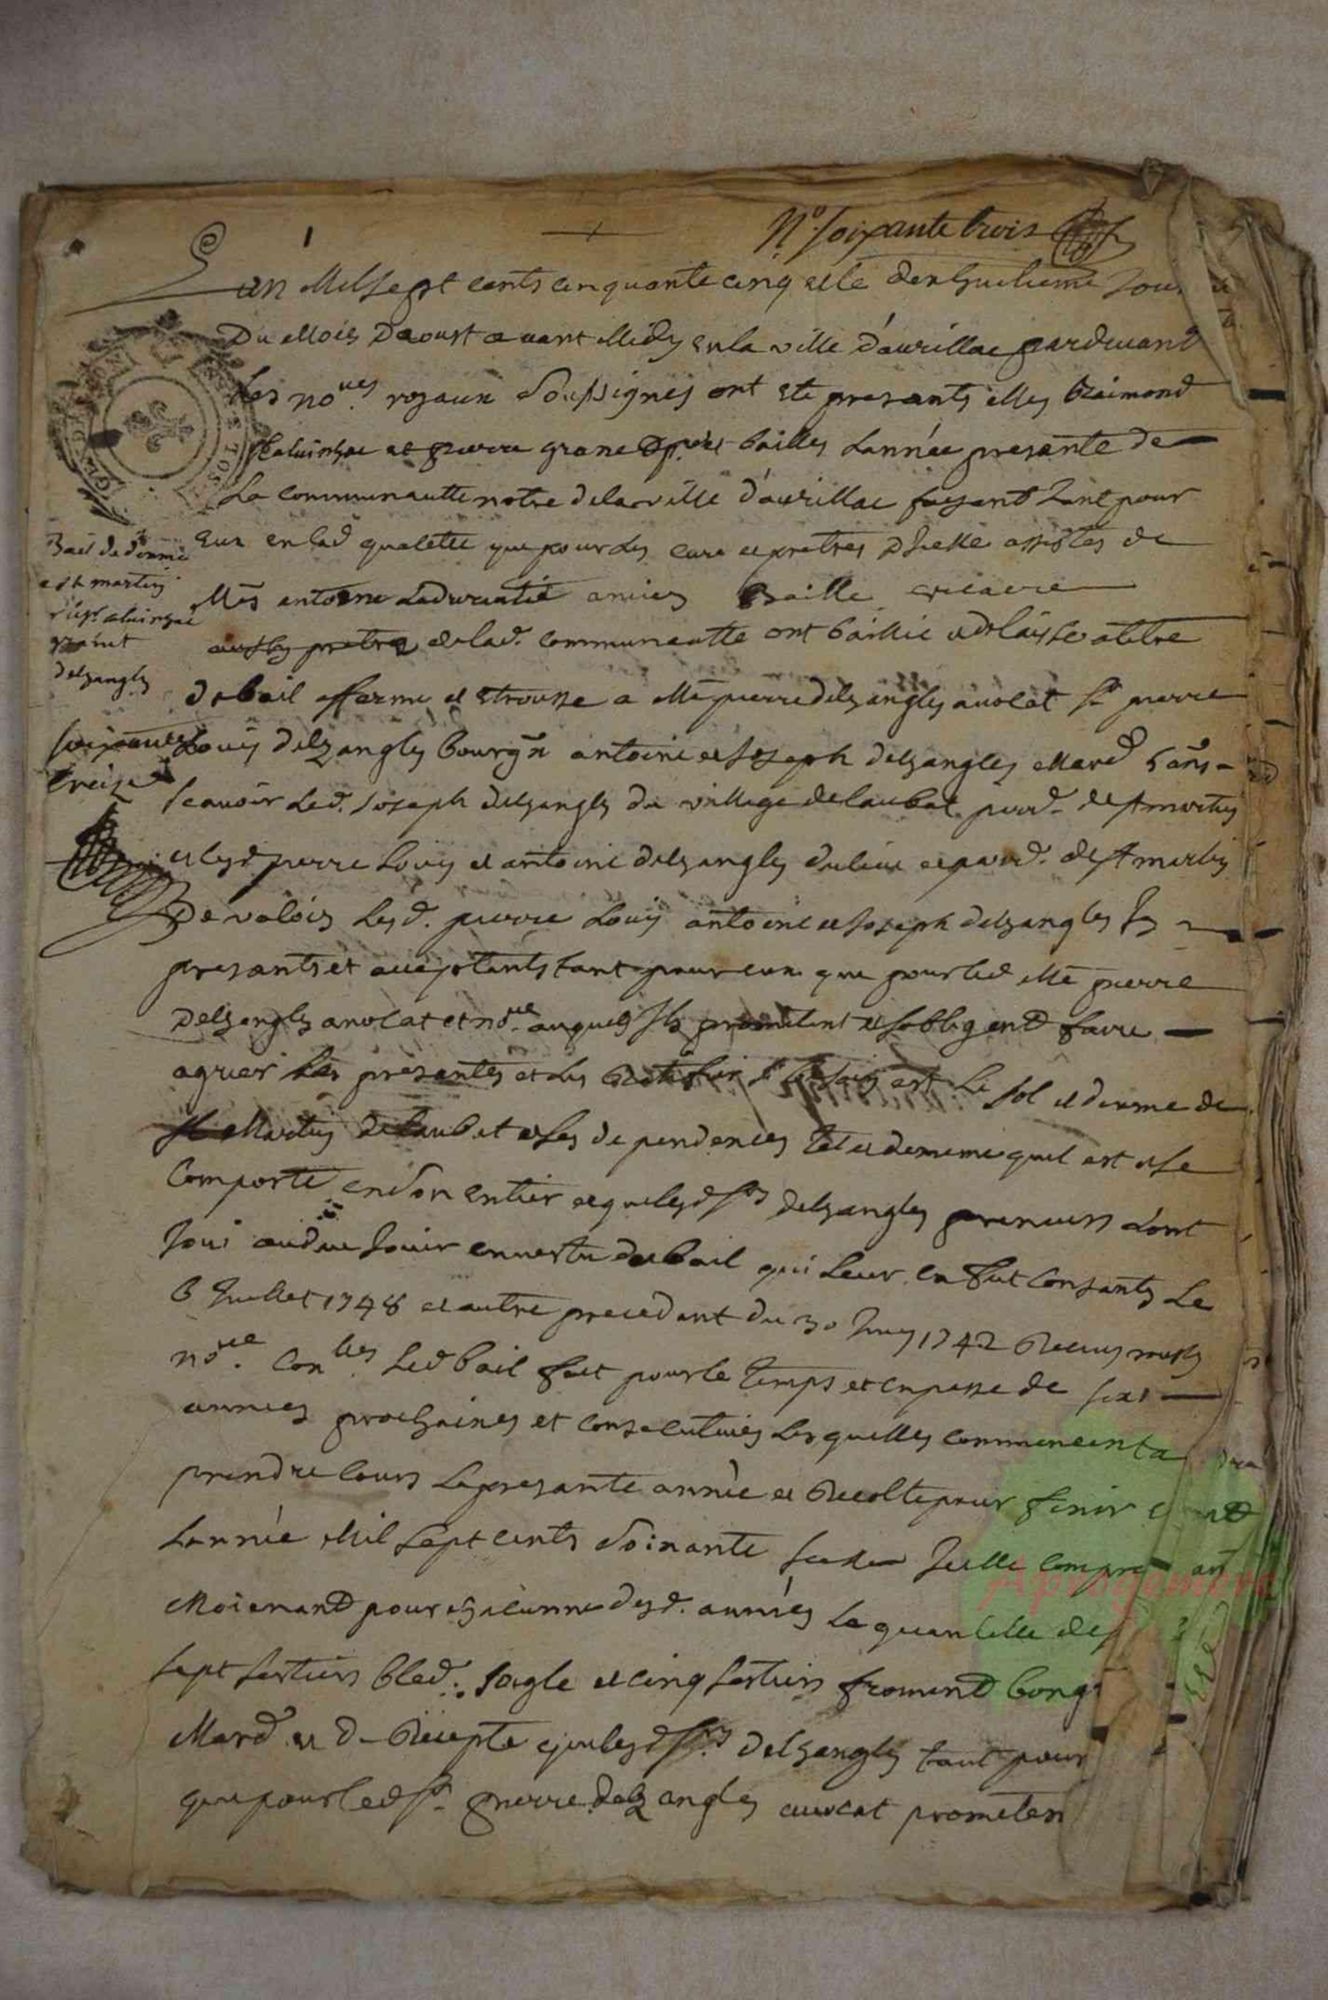 N° soixante trois
1
L'an Mil sept cents cinquante cinq et le dixhuitieme Jour
Du Mois Daoust avant Midy en la ville d'aurillac pardevant
Les nores royaux soussignes ont ete presants mes Raimond
et pierre grane bailles Lannée presante de
La communautte notre de la ville d'aurillac fasant tant pour
Eux en lad qualitté que pour les cure et pretres Dicelle assistes de
Mes antoine Ladurantie ancien Baille
de lad. communautte ont baillé et delaisse a titre
de bail afferme et Etrousse a Me pierre delzangles avocat Sr pierre
Louis delzangles bourgn antoine et Joseph delzangles Mard
scavoir led. Joseph delzangles du village de laubat parr. de st martin
et lesd. pierre Louis et antoine delzangles du lieu et parr. de st martin
De valois Lesd. pierre Louis antoine et Joseph delzangles Is
presants et acceptants tant pour eux que pour led Me pierre
Delzangles avocat et nore auquel Ils promettent et sobligent faire
agreer Les presantes et Les Ratifier est Le sol et dixme de
st Martin de laubat et ses dependences tel et de meme quil est et se
Comporte en son entier et que lesd srs delzangles preneurs Lont
Joui ou du Jouir en vertu du bail qui Leur en fut Consanty Le
6 Juillet 1748 et autre precedant du 30 Juin 1742 Recus
nore Led bail fait pour le temps et espasse de six
annees prochaines et consecutives Lesquelles commencent a
prendre cours La presante année et Recolte pour finir
Lannée Mil sept cents soixante Icelle
Moienant pour chacunne desd. années La quantitté de
sept sestiers bled. seigle et cinq sestiers froment bons
Mard et de Recepte que lesd srs delzangles tant pour
que pour led sr pierre delzangles avocat
Bail de dixme
a st martin
delzangles
soixante
treize
Aprogemere